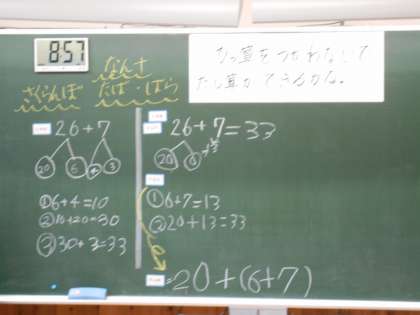 8:57
ひっ算をつかわないで
たし算ができるかな。
さくらんぼ
たば・ばら
26+7
20 6 4 3
①6+4=10
②10+20=30
③30+3=33
26+7=33
20 6
①6+7=13
②20+13=33
=20+(6+7)